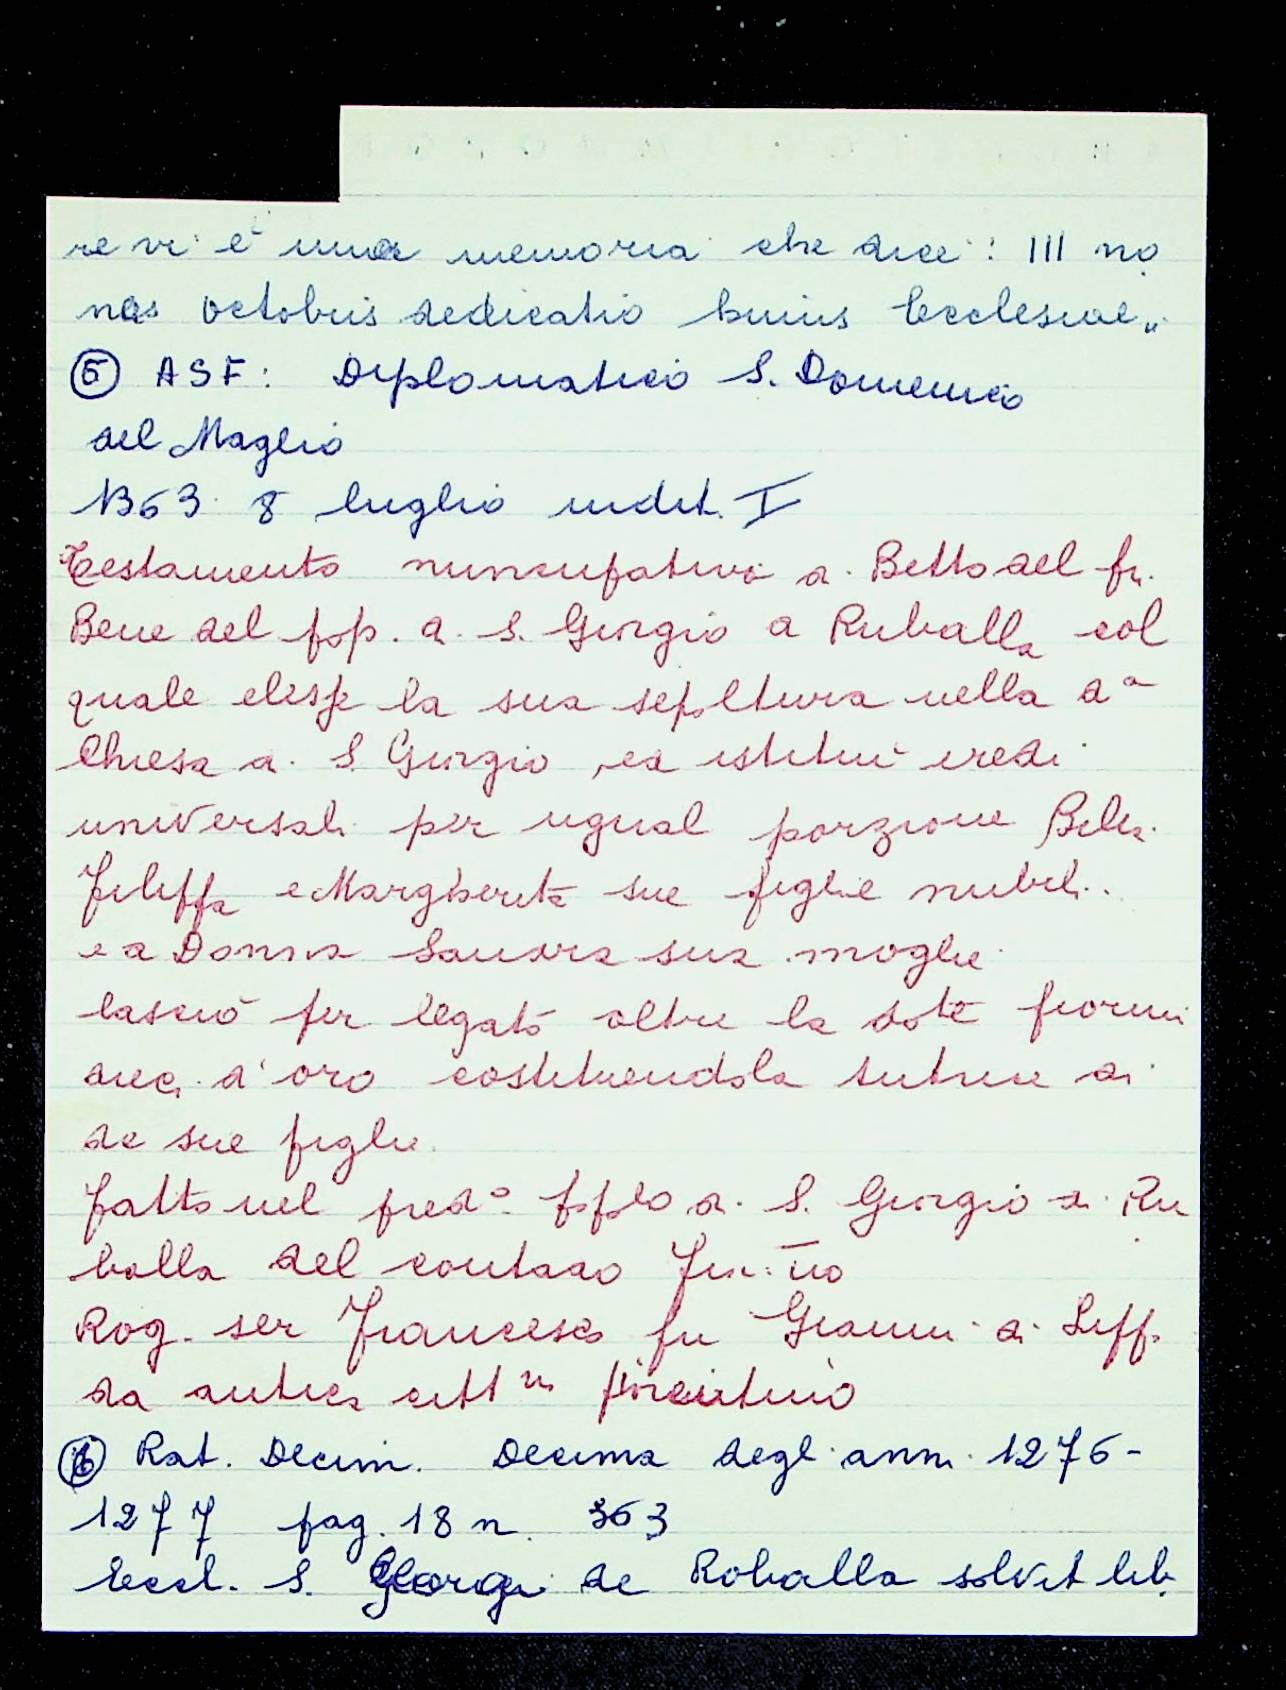 re vi è una memoria che dice: III no
nas octobris dedicatio huius Ecclesiae„
⑤ ASF: Diplomatico S. Domenico
del Maglio
1363 8 luglio indit. I
Testamento nuncupativo di Betto del fu
Bene del pop. di S. Giorgio a Ruballa col
quale elesse la sua sepoltura nella dª
Chiesa di S. Giorgio, ed istituì eredi
universali per ugual porzione Bilia
Filippa e Margherita sue figlie nubili.
e a Donna Sandra sua moglie
lasciò per legato oltre la dote fiorini
dieci d'oro costituendola tutrice di
de sue figlie.
fatto nel pred° popolo di S. Giorgio a Ru
balla del contado Fin:no
Rog. ser Francesco fu Gianni di
da antica cittno fiorentino
⑥ Rat. Decim. Decima degli anni 1276-
1277 pag. 18 n. 363
Eccl. S. Georgi de Roballa solvit lib.